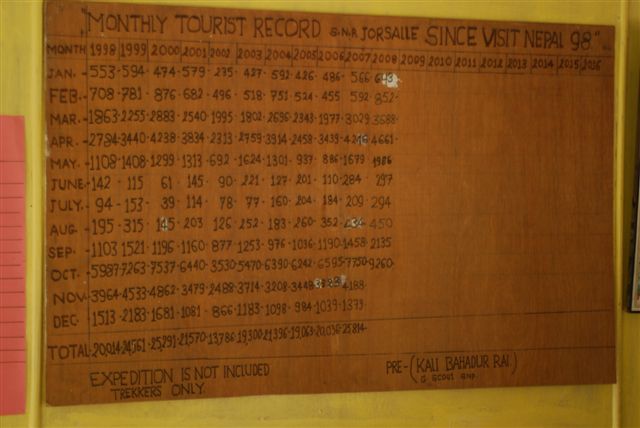 "MONTHLY TOURIST RECORD S.N.P. JORSALLE SINCE VISIT NEPAL 98."
MONTH 1998 1999 2000 2001 2002 2003 2004 2005 2006 2007 2008 2009 2010 2011 2012 2013 2014 2015 2016
JAN. 553 - 594 - 474 - 579 - 235 - 427 - 592 - 426 - 486 - 566
FEB. 708 - 781 - 876 - 682 - 496 - 518 - 751 - 524 - 455 592 - 852
MAR. 1863 - 2255 - 2883 - 2540 1995 1802 - 2696 - 2343 - 1977 - 3029 3688
APR. 2784 - 3440 - 4238 - 3834 2313 - 2759 - 3914 - 2458 - 3439 - 4661
MAY. 1108 - 1408 - 1299 - 1313 - 692 - 1624 - 1301 - 937 - 886 - 1679 1986
JUNE - 142 - 115 61 - 145 - 90 - 221 - 127 - 201 - 110 - 284 - 297
JULY. 94 - 153 - 39 - 114 - 78 - 77 - 160 - 204 - 184 209 - 294
AUG - 195 - 315 - 203 126 - 252 - 183 - 260 - 352 450
SEP. - 1103 1521 - 1196 - 1160 - 877 - 1253 - 976 - 1036 - 1190 - 1458 - 2135
OCT. - 5987 - 7263 - 7537 - 6440 - 3530 - 5470 - 6390 - 6242 - 6595 - 7750 - 9260
NOV. - 3964 - 4533 - 4862 - 3479 - 2488 - 3714 - 3208 - 3448 4188
DEC. 1513 - 2183 - 1681 - 1081 - 866 - 1183 - 1098 - 984 - 1039 - 1379
TOTAL - 20,014 - 24,561 - 25,291 - 21570 - 13,786 - 19,300 - 21,396 - 19,063 - 20,036 - 25,814
EXPEDITION IS NOT INCLUDED
TREKKERS ONLY.
PRE - (KALI BAHADUR RAI)